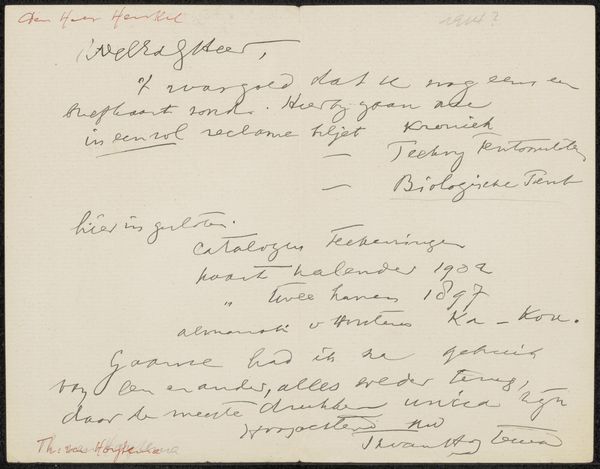 den Heer Henkel
1914?
WelEdGHeer,
't was goed dat U nog eens een
briefkaart zond. Hierbij gaan
in een rol reclame biljet Kroniek
— Teeken
— Biologische Tent
hier in gesloten.
Catalogus Teekeningen
kaart kalender 1902
" twee hanen 1897
almanak v Houtens Ka-Kou.
Gaarne had ik na gebruik
van een en ander, alles weder terug,
daar de meeste drukken unica zijn
hoogachtend
Th van Hoytema
Th. van Hoytema